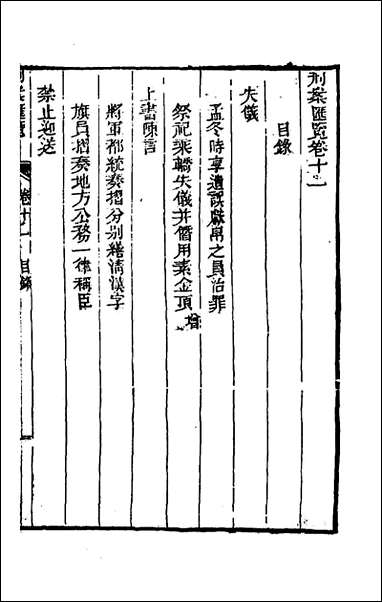 刑案匯覽卷十一
目錄
失儀
孟冬時享遺誤獻帛之員治罪
祭祀乘轎失儀并僭用素金頂 增
上書陳言
將軍都統奏摺分別繕清漢字
旗員摺奏地方公務一律稱臣
禁止迎送
刑案匯覽 卷十一 目錄